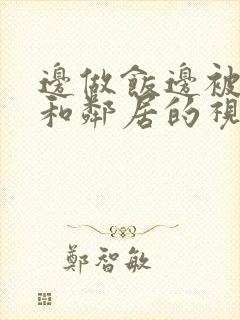 邊做飯邊被
和鄰居的視
鄭智敏